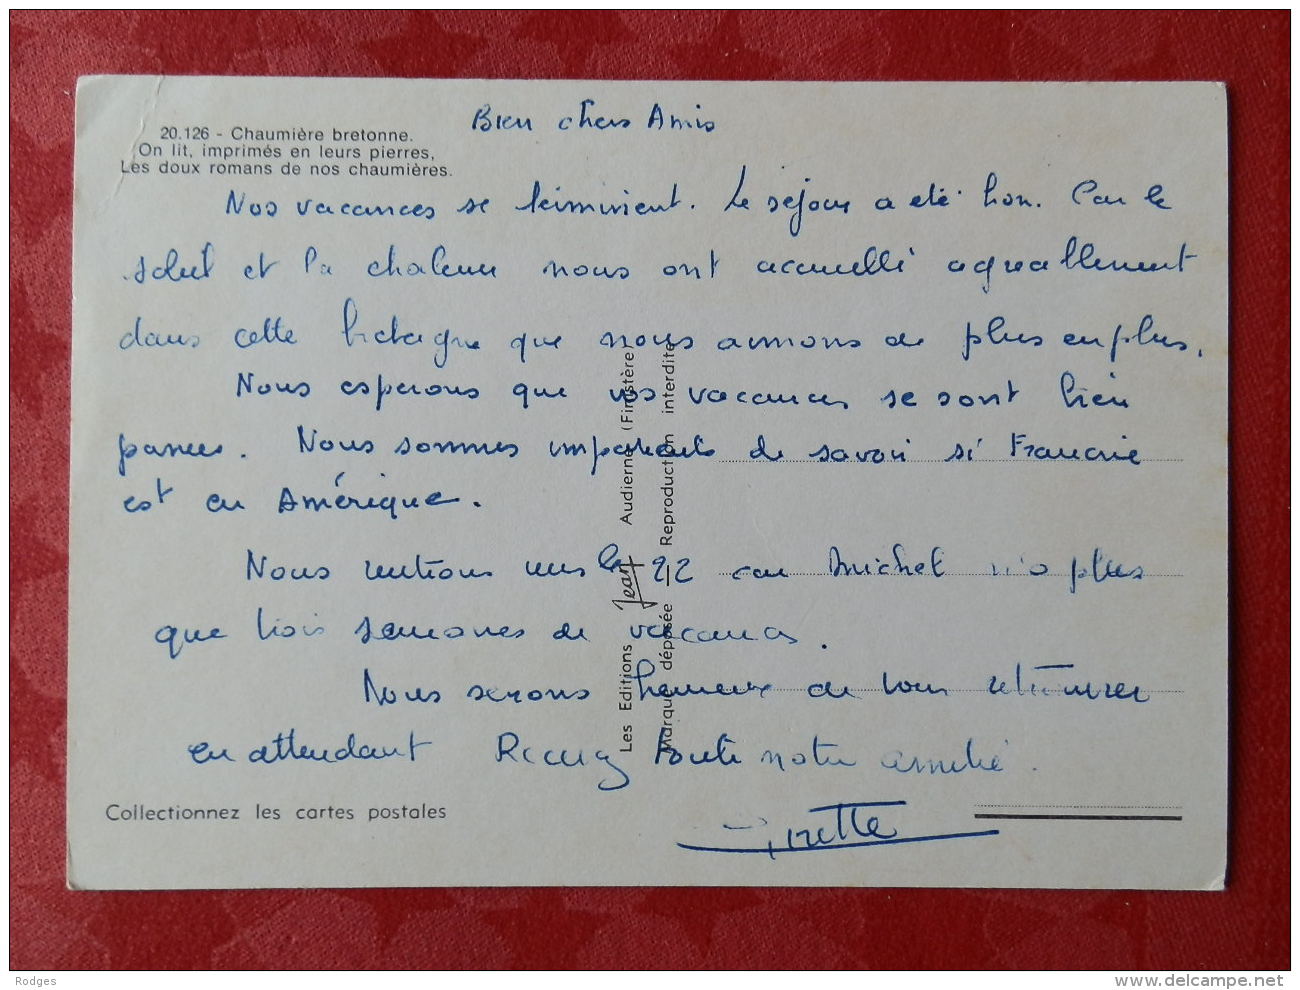 Bien chers Amis
20.126 - Chaumière bretonne.
On lit, imprimés en leurs pierres,
Les doux romans de nos chaumières.
Nos vacances se terminent. Le séjour a été bon. Car le
soleil et la chaleur nous ont accueilli agreablement
dans cette bretagne que nous aimons de plus en plus.
Nous esperons que vos vacances se sont bien
passees. Nous sommes impatients de savoir si Francine
est en Amérique.
Nous rentrons vers le 22 car Michel n'a plus
que trois semaines de vacances.
Nous serons heureux de vous retrouver
en attendant Recevez toute notre amitié.
Les Editions Jean Audierne (Finistère
Marque déposée Reproduction interdite
Collectionnez les cartes postales
Rodges
www.delcampe.net